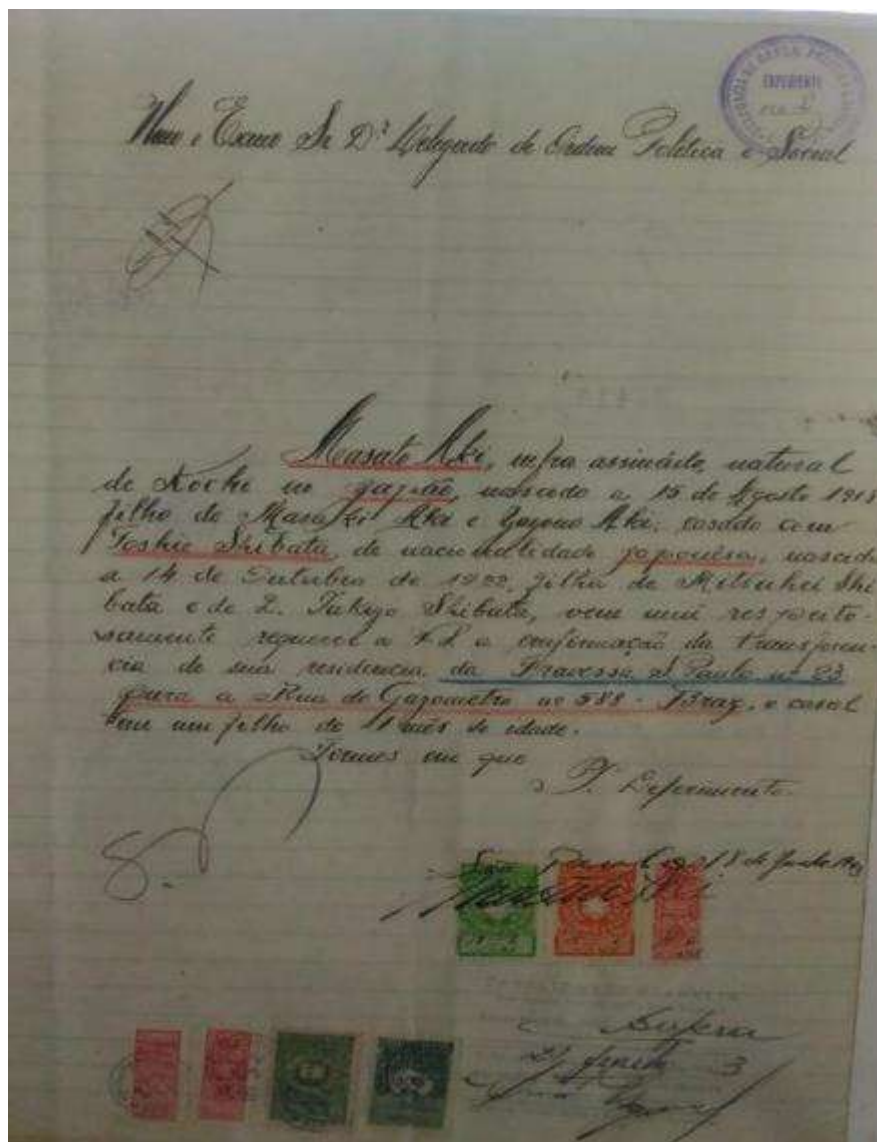 EXPEDIENTE
Illmo e Exmo Sr Dr Delegado de Ordem Politica e Social
Masato Aki, infra assinado, natural
de Kochi no Japão, nascido a 15 de Agosto 191
filho de Masaki Aki e Aki; casado com
Toshie Shibata, de nacionalidade japonêsa, nascida
a 14 de Outubro de 1922, filha de Mitsuhei Shi
bata e de D. Shibata, vem mui respeito-
samente requerer a V.S. a confirmação da transferen-
cia de sua residencia da Travessa S. Paulo nº 23
para a Rua do Gazometro nº 588 - Braz, o casal
tem um filho de 1 mês de idade.
Termos em que
P. Deferimento.
São Paulo, 18 de Junho